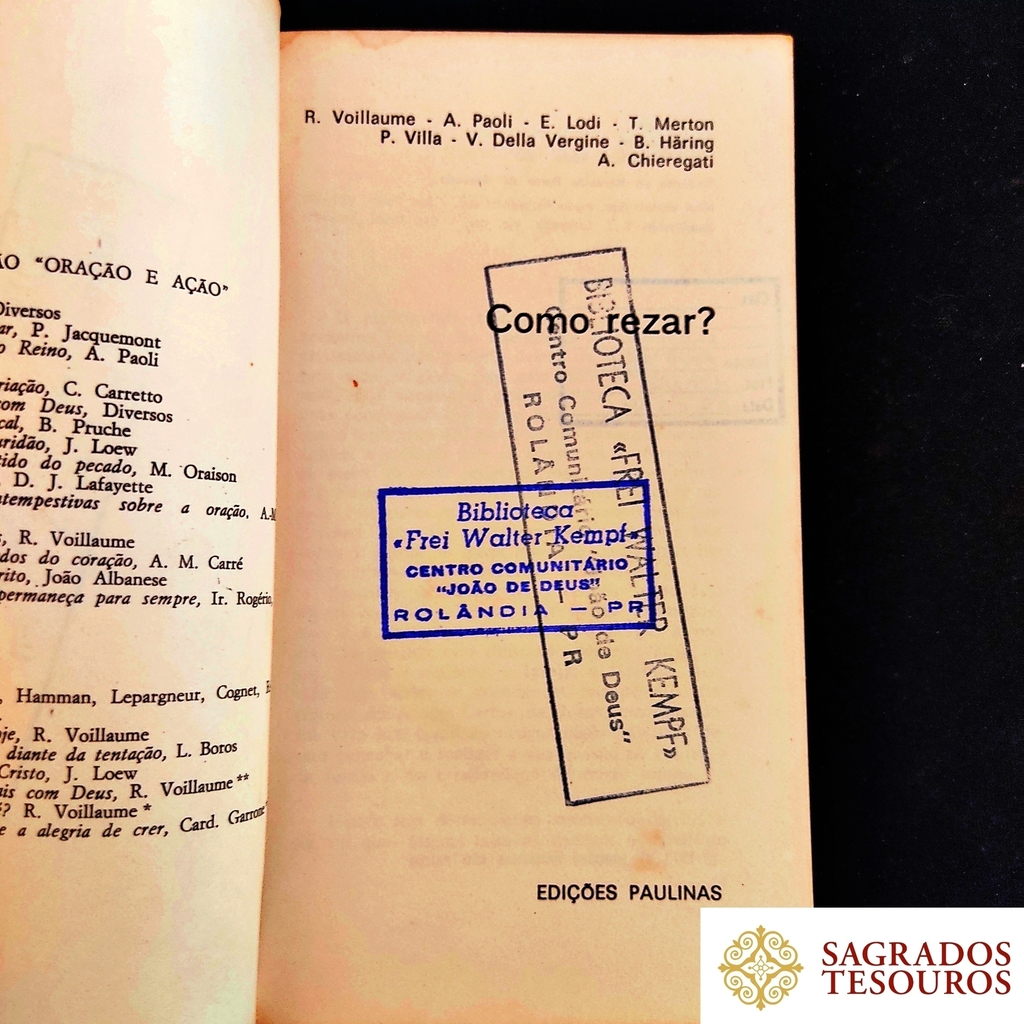 "ORAÇÃO E AÇÃO"
Diversos
P. Jacquemont
Reino, A. Paoli
C. Carretto
com Deus, Diversos
B. Pruche
J. Loew
do pecado, M. Oraison
D. J. Lafayette
sobre a oração,
R. Voillaume
dos do coração, A. M. Carré
João Albanese
permaneça para sempre, Ir. Rogério,
Hamman, Lepargneur, Cognet,
R. Voillaume
diante da tentação, L. Boros
Cristo, J. Loew
com Deus, R. Voillaume **
? R. Voillaume *
e a alegria de crer, Card. Garrone
R. Voillaume - A. Paoli - E. Lodi - T. Merton
P. Villa - V. Della Vergine - B. Häring
A. Chieregati
Como rezar?
BIBLIOTECA «FREI WALTER KEMPF»
Centro Comunitário "João de Deus"
ROLANDIA - PR
Biblioteca
«Frei Walter Kempf»
CENTRO COMUNITÁRIO
"JOÃO DE DEUS"
ROLÂNDIA — PR
EDIÇÕES PAULINAS
SAGRADOS
TESOUROS